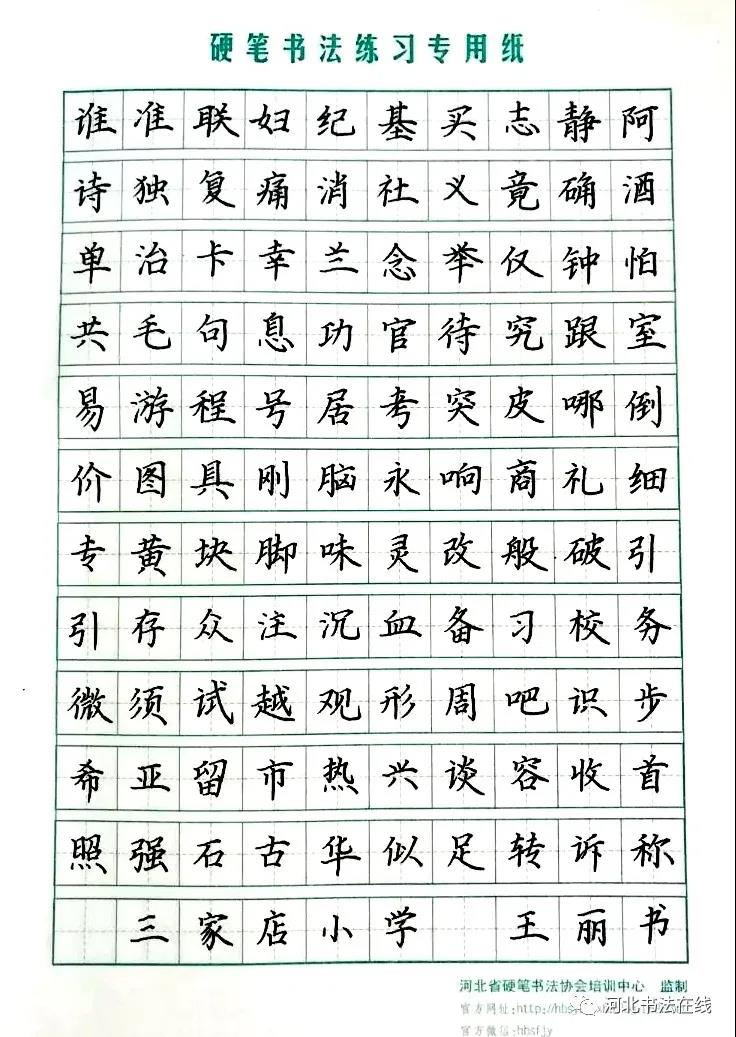 硬笔书法练习专用纸
谁准联妇纪基买志静阿
诗独复痛消社义竟确酒
单治卡幸兰念举仅钟怕
共毛句息功官待究跟室
易游程号居考突皮哪倒
价图具刚脑永响商礼细
专黄块脚味灵改般破引
引存众注沉血备习校务
微须试越观形周吧识步
希亚留市热兴谈容收首
照强石古华似足转诉称
三家店小学 王丽书
河北省硬笔书法协会培训中心 监制
官方网址:http://hbs
河北书法在线
官方微信:hbsfjy